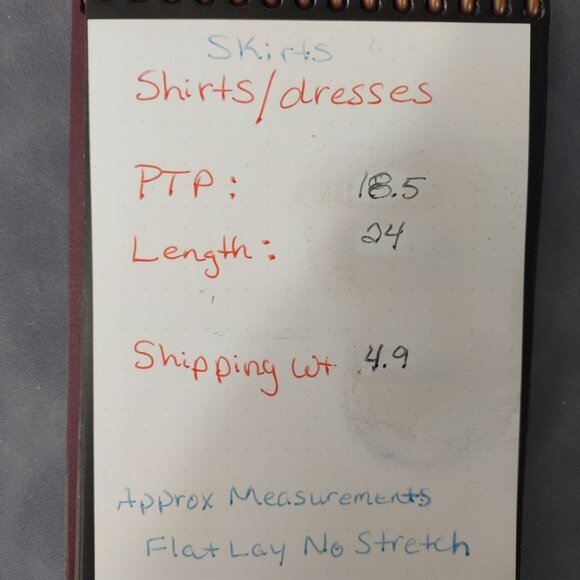 Skirts
Shirts/dresses
PTP: 18.5
Length: 24
Shipping Wt 4.9
Approx Measurements
Flat Lay No Stretch